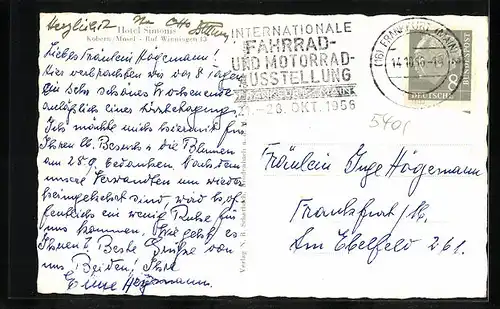 Herzlichst Ihr Otto
Hotel Simonis
Kobern/Mosel - Ruf Winningen 13
Liebes Fräulein Högemann!
Hier verbrachten wir vor 8 Tagen
ein sehr schönes Wochenende
anläßlich einer
Ich möchte mich hiermit für
Ihren lb. Besuch u. die Blumen
am 28.9. bedanken. Nachdem
unsere Verwandten nun wieder
heimgekehrt sind, wird hof-
fentlich ein wenig Ruhe für
uns kommen. Wie geht es
Ihnen? Beste Grüße von
uns Beiden! Ihre
INTERNATIONALE
FAHRRAD-
UND MOTORRAD-
AUSSTELLUNG
FRANKFURT AM MAIN
21.-28. OKT. 1956
(16) FRANKFURT (MAIN)
DEUTSCHE BUNDESPOST
8
5401
Fräulein Inge Högemann
Frankfurt/M.
Am Ebelfeld 261.